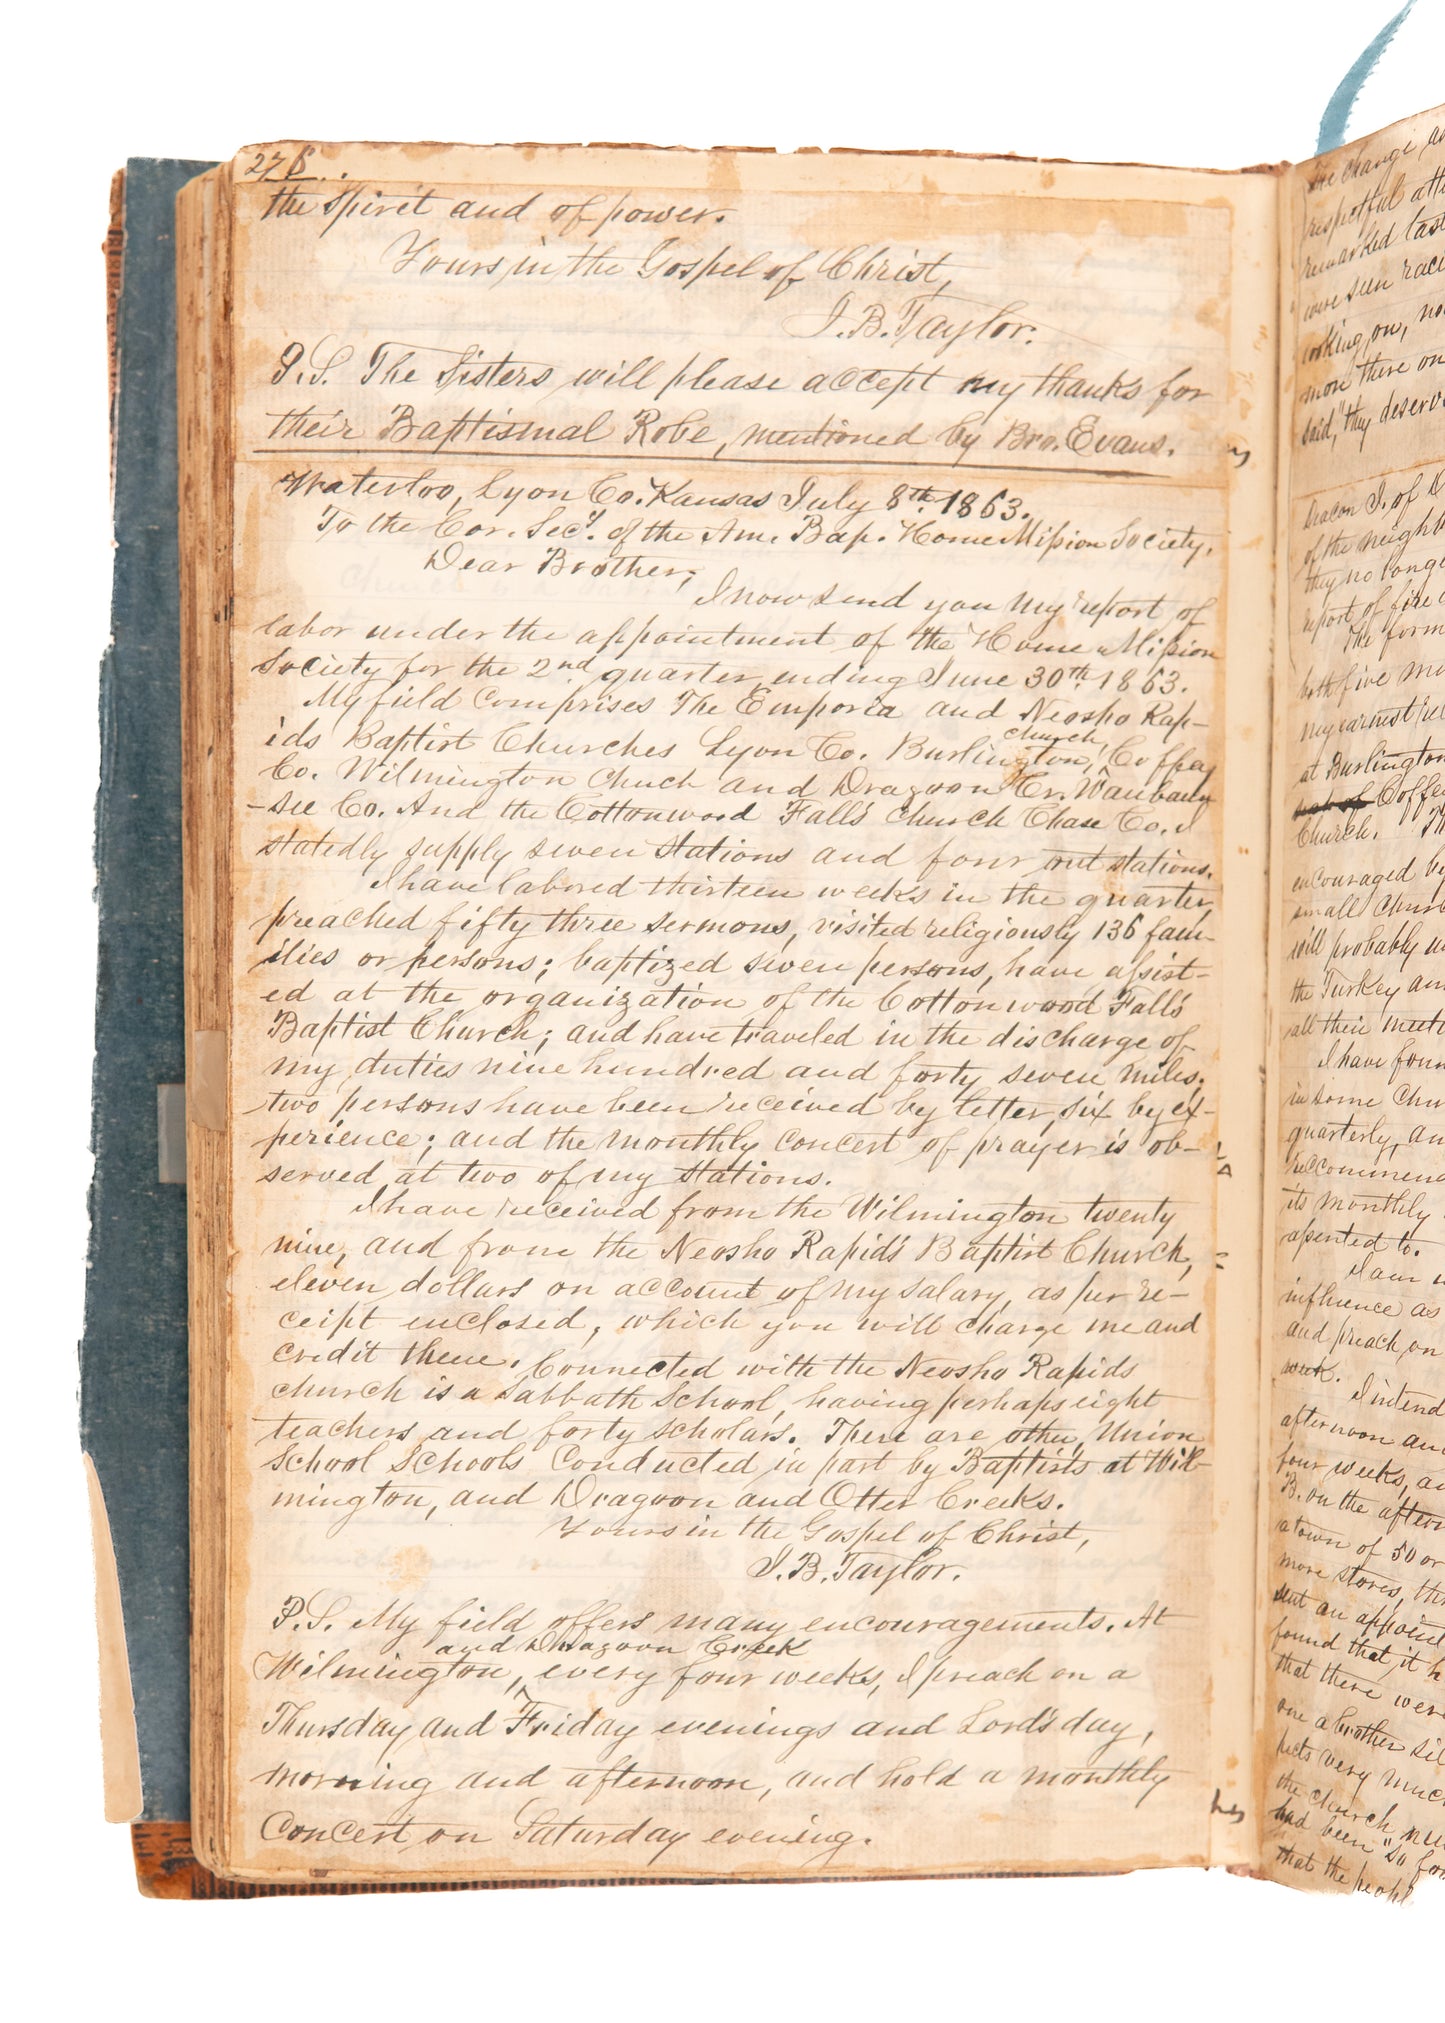 276.
the Spirit and of power.
Yours in the Gospel of Christ,
J. B. Taylor.
P.S. The Sisters will please accept my thanks for
their Baptismal Robe, mentioned by Bro. Evans.
Waterloo, Lyon Co. Kansas July 8th. 1863.
To the Cor. Secy. of the Am. Bap. Home Mission Society.
Dear Brother;
I now send you my report of
labor under the appointment of the Home Mission
Society for the 2nd. quarter, ending June 30th. 1863.
My field comprises The Emporia and Neosho Rap-
ids Baptist Churches Lyon Co. Burlington, church, Coffey
Co. Wilmington Chuch and Dragoon Cr. Waubaun
-see Co. And the Cottonwood Fall's Church Chase Co. I
statedly supply seven stations and four out stations.
I have labored thirteen weeks in the quarter,
preached fifty three sermons, visited religiously 136 fam-
ilies or persons; baptized seven persons, have assist-
ed at the organization of the Cottonwood Fall's
Baptist Church; and have traveled in the discharge of
my duties nine hundred and forty seven miles;
two persons have been received by letter, six by ex-
perience; and the monthly concert of prayer is ob-
served at two of my stations.
I have received from the Wilmington twenty
nine, and from the Neosho Rapid's Baptist Church,
eleven dollars on account of my salary, as per re-
ceipt enclosed, which you will charge me and
credit them. Connected with the Neosho Rapids
church is a Sabbath School, having perhaps eight
teachers and forty scholars. There are other Union
School Schools conducted in part by Baptists at Wil-
mington, and Dragoon and Otter Creeks.
Yours in the Gospel of Christ,
J. B. Taylor.
P.S. My field offers many encouragements. At
and Dragoon Creek
Wilmington, every four weeks, I preach on a
Thursday and Friday evenings and Lord's day,
morning and afternoon, and hold a monthly
Concert on Saturday evening.
the change
respectful
remarked last
were seen
looking on,
more there on
said, "they
Deacon J. of
of the
they no longer
report of fire
The
both five
my earnest
at Burlington
Church.
encouraged by
small
will probably
the Turkey
all their
I have
in some
quarterly,
its monthly
assented to.
I am
influence as
and preach on
week.
I intend
afternoon and
four weeks,
B. on the
a town of 50 or
more stores,
sent an
found that it
that there were
one a brother
very much
the church
had been "so
that the